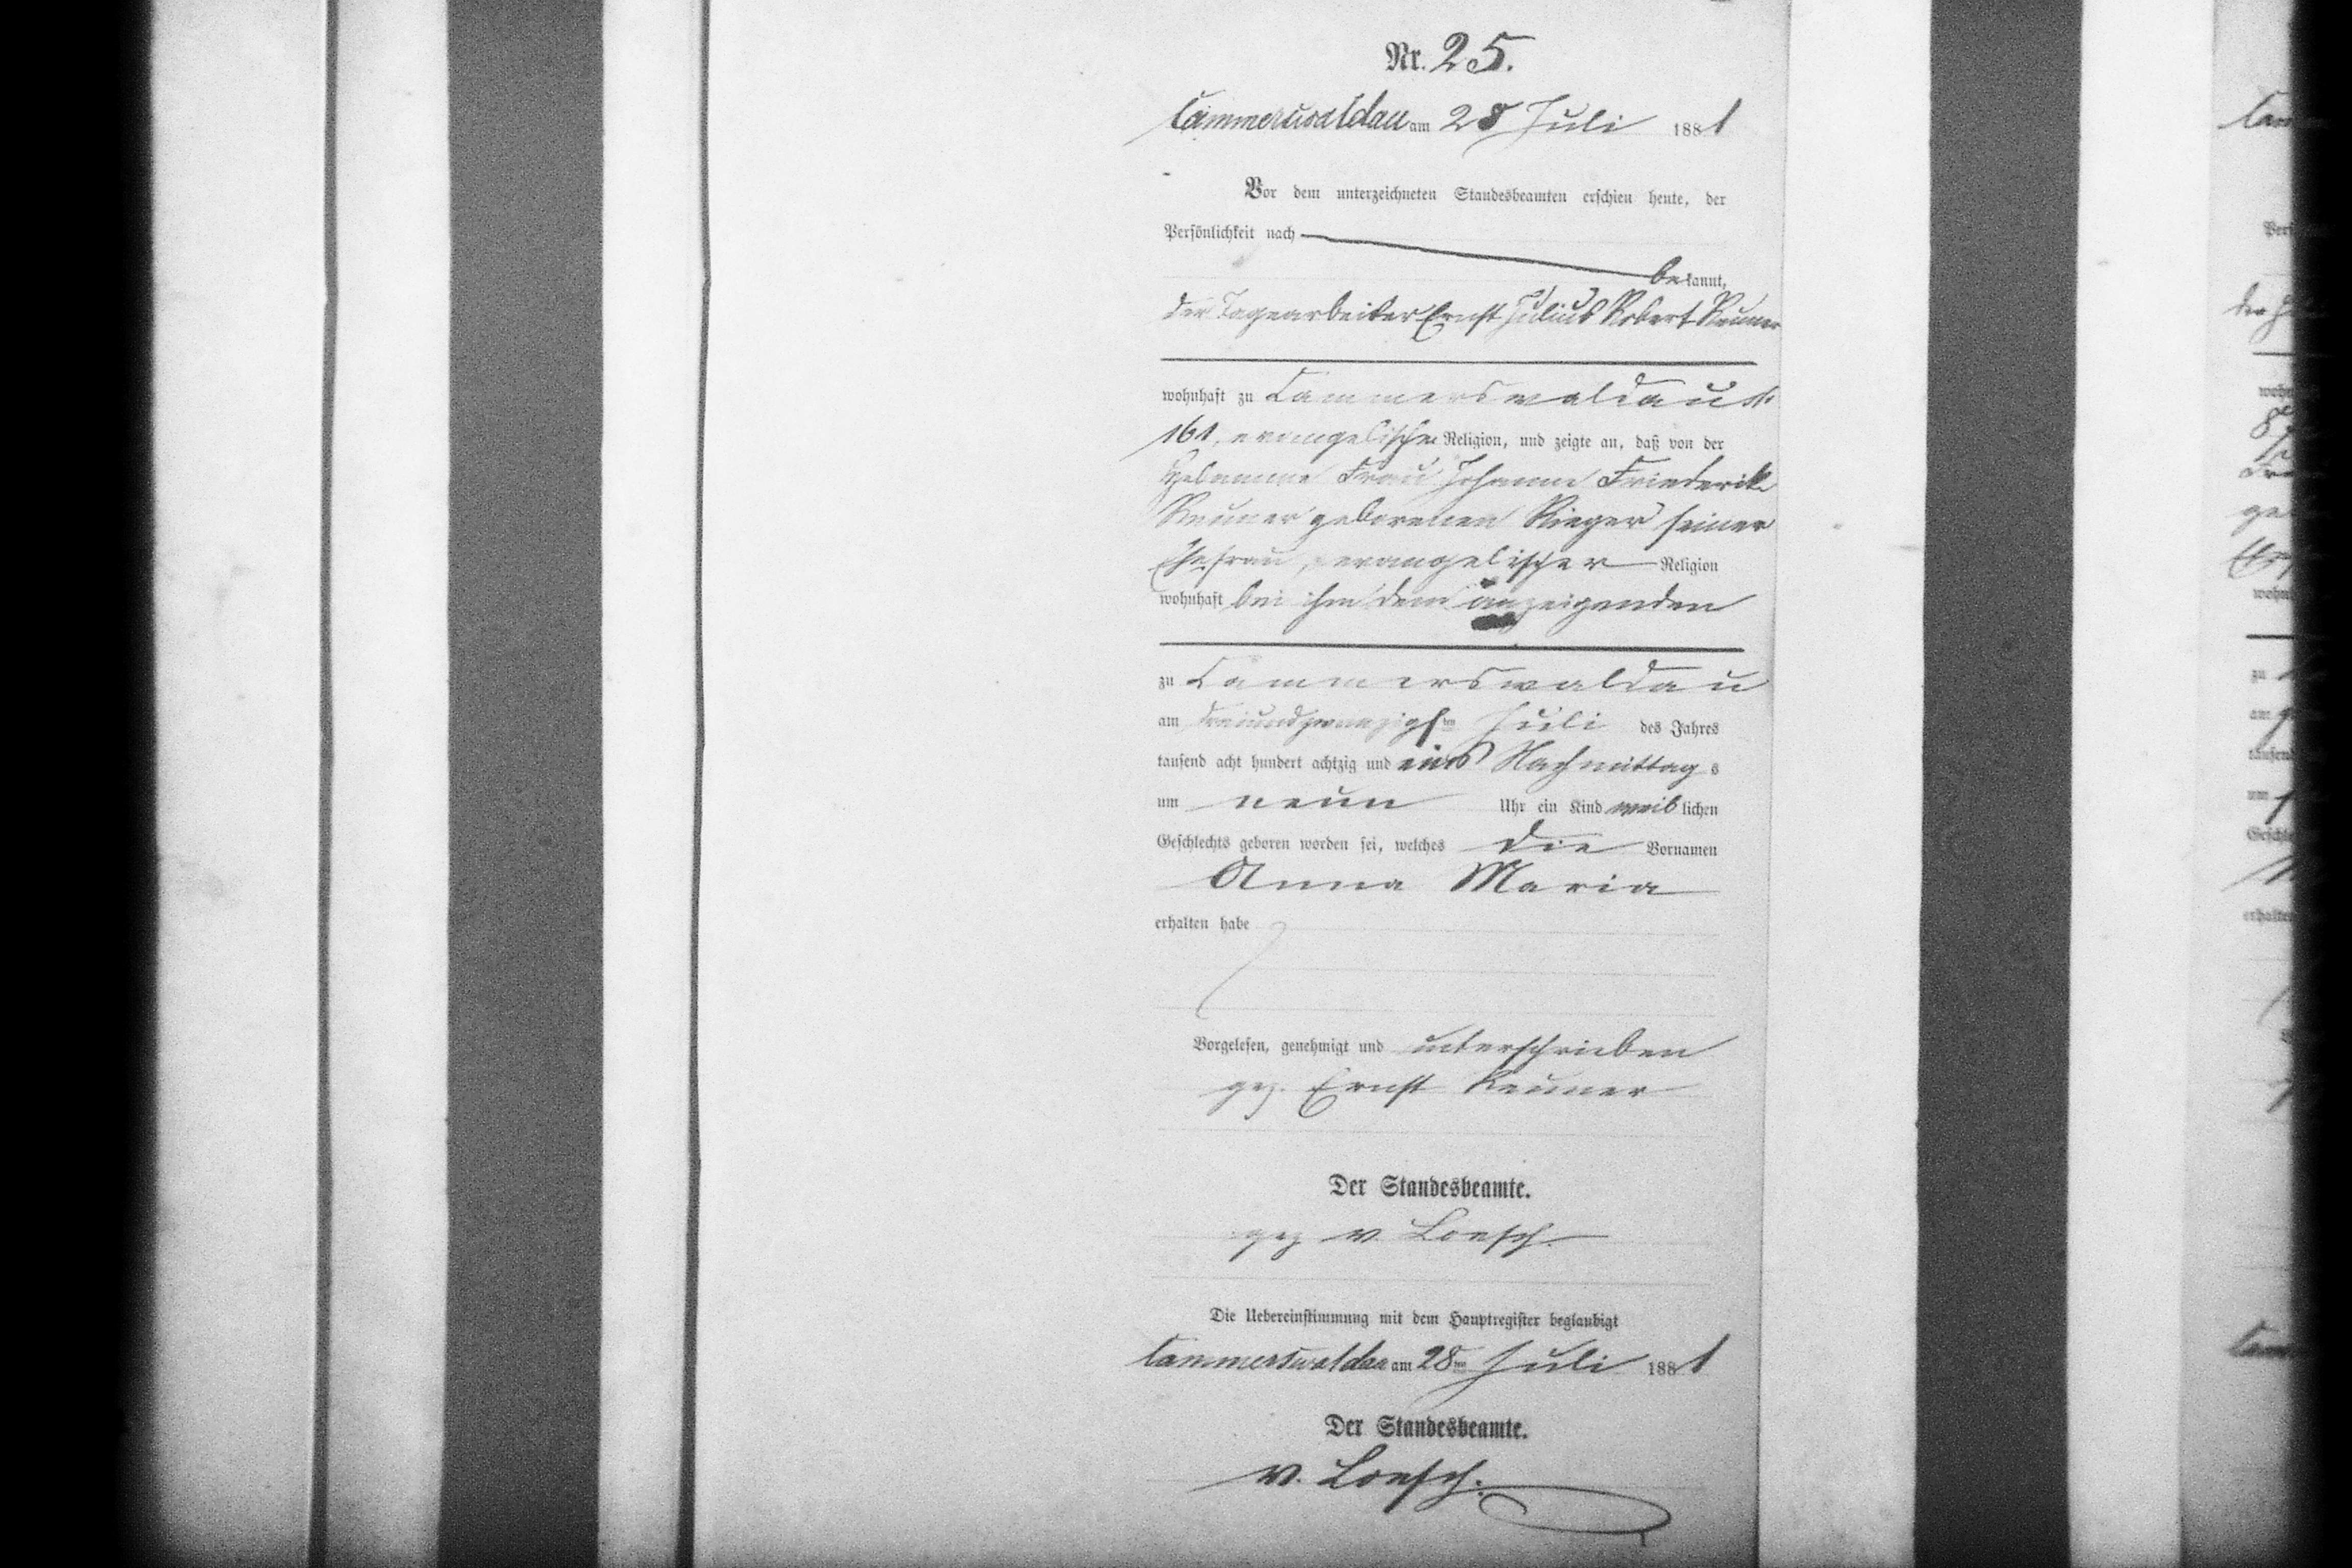 Nr. 25.
Cammerswaldau am 28 Juli 1881
Vor dem unterzeichneten Standesbeamten erschien heute, der
Persönlichkeit nach
bekannt,
der Tagearbeiter Ernst Julius Robert Reuner
wohnhaft zu Cammerswaldau №
161, evangelischer Religion, und zeigte an, daß von der
Hebamme Frau Johanne Friederike
Reuner geborenen Rieger seiner
Ehefrau, evangelischer Religion
wohnhaft bei ihm dem anzeigenden
zu Cammerswaldau
am dreiundzwanzigsten Juli des Jahres
tausend acht hundert achtzig und eins Nachmittags
um neun Uhr ein Kind weiblichen
Geschlechts geboren worden sei, welches die Vornamen
Anna Maria
erhalten habe
Vorgelesen, genehmigt und unterschrieben
gez. Ernst Reuner
Der Standesbeamte.
gez v. Loesch.
Die Uebereinstimmung mit dem Hauptregister beglaubigt
Cammerswaldau am 28ten Juli 1881
Der Standesbeamte.
v. Loesch.